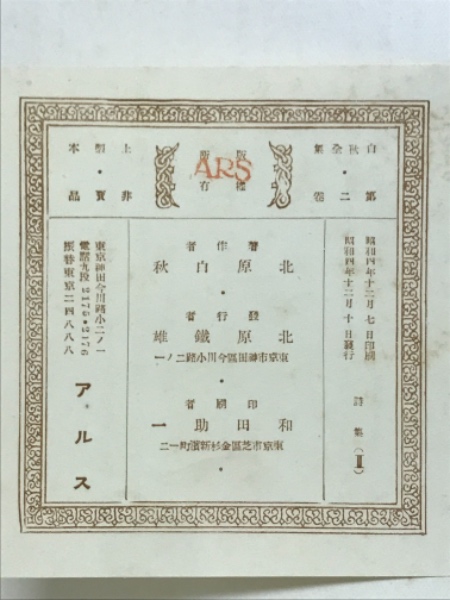 白秋全集
・
第二卷
版權
所有
ARS
上製本
・
非賣品
昭和四年十二月七日印刷
昭和四年十二月十日發行
詩集（II）
著作者
北原白秋
・
發行者
北原鐵雄
東京市神田區今川小路二ノ一
・
印刷者
和田助一
東京市芝區金杉新濱町一二
・
東京神田今川路小二ノ一
電話九段2175・2176
振替東京二四八八八
アルス